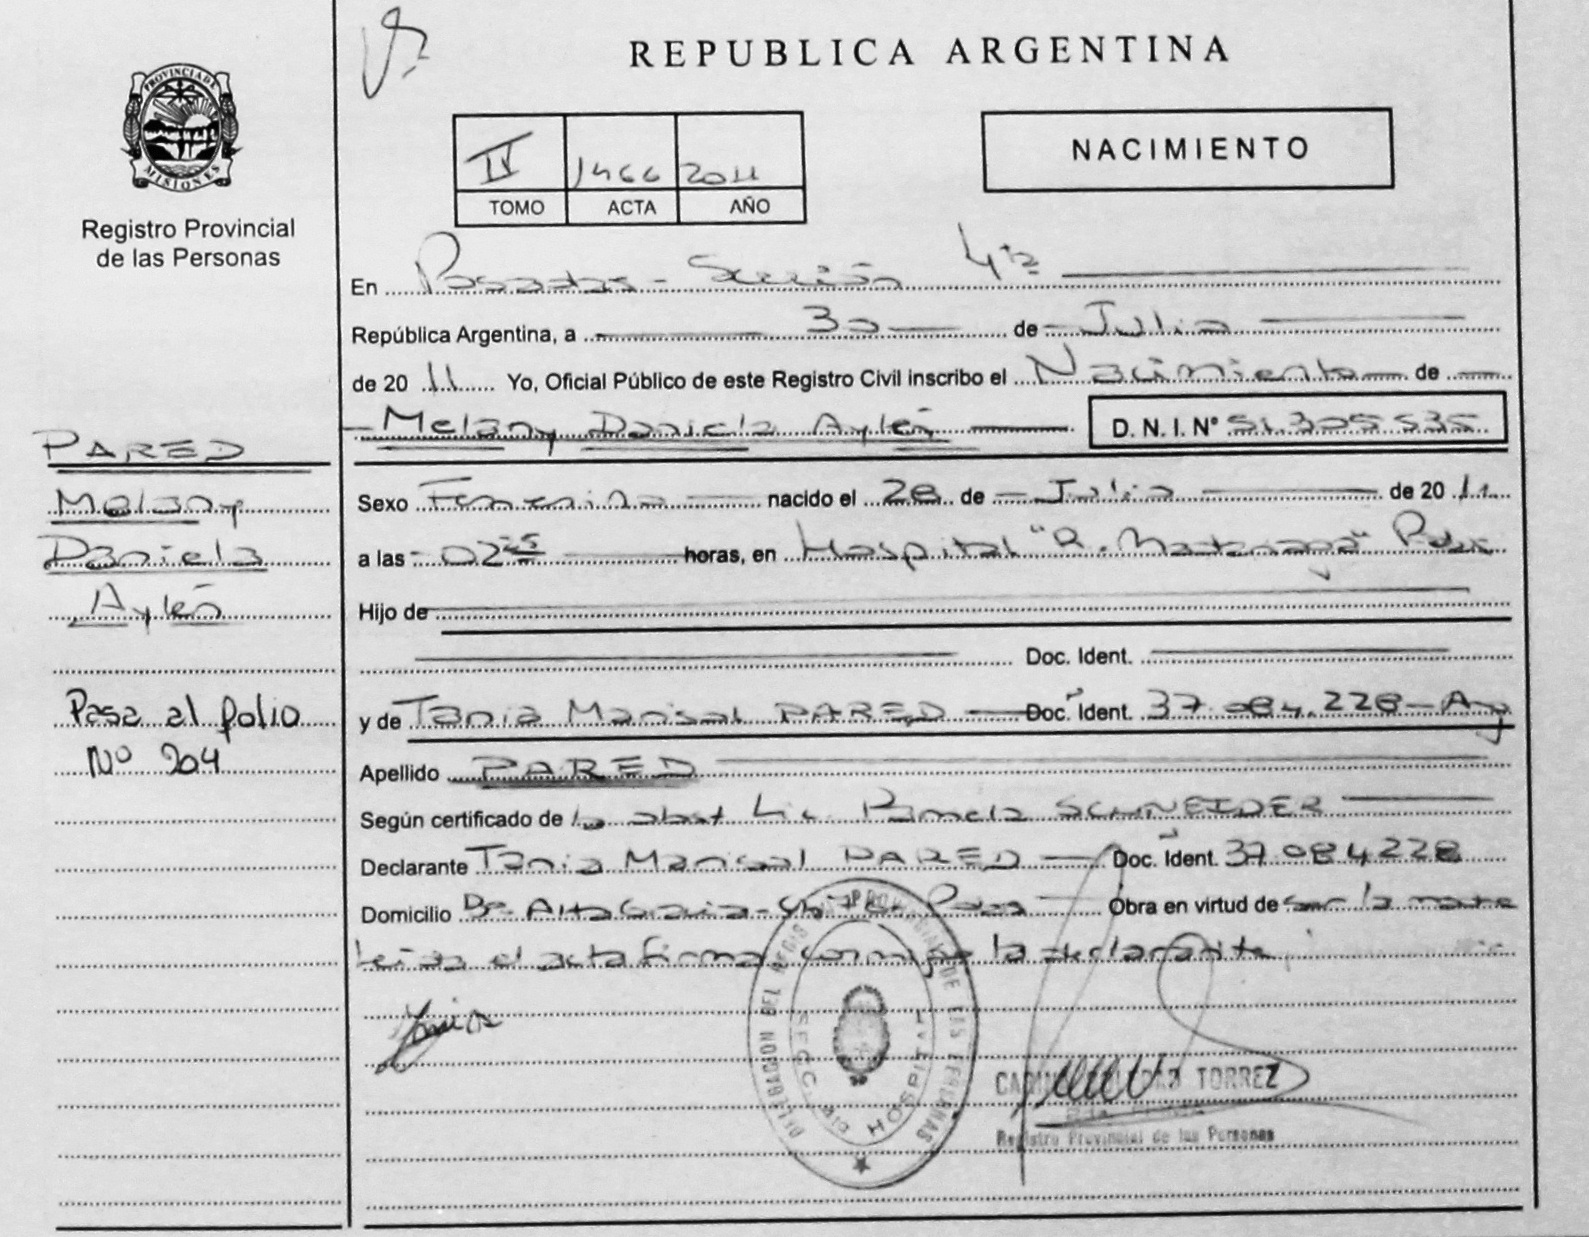 REPUBLICA ARGENTINA
PROVINCIA DE
MISIONES
Registro Provincial
de las Personas
IV 1466 2011
TOMO ACTA AÑO
NACIMIENTO
En Posadas - Sección 4ta
República Argentina, a 30 de Julio
de 2011 Yo, Oficial Público de este Registro Civil inscribo el Nacimiento de
Melany Daniela Aylén D. N. I. Nº 51.305535
PARED
Melany
Daniela
Aylén
Pasa al folio
Nº 204
Sexo Femenino nacido el 28 de Julio de 2011
a las 02 horas, en Hospital "R. Madariaga"
Hijo de
Doc. Ident.
y de Tania Marisol PARED Doc. Ident. 37.084.228 - Arg
Apellido PARED
Según certificado de la obst Lic. Pamela SCHNEIDER
Declarante Tania Marisol PARED Doc. Ident. 37.084.228
Domicilio Bº Alta Gracia - Obra en virtud de ser la madre
Leída el acta firma conmigo la declarante
Tania
DELEGACION DEL REGISTRO PROVINCIAL DE LAS PERSONAS
SECC. HOSPITAL
TORREZ
Registro Provincial de las Personas